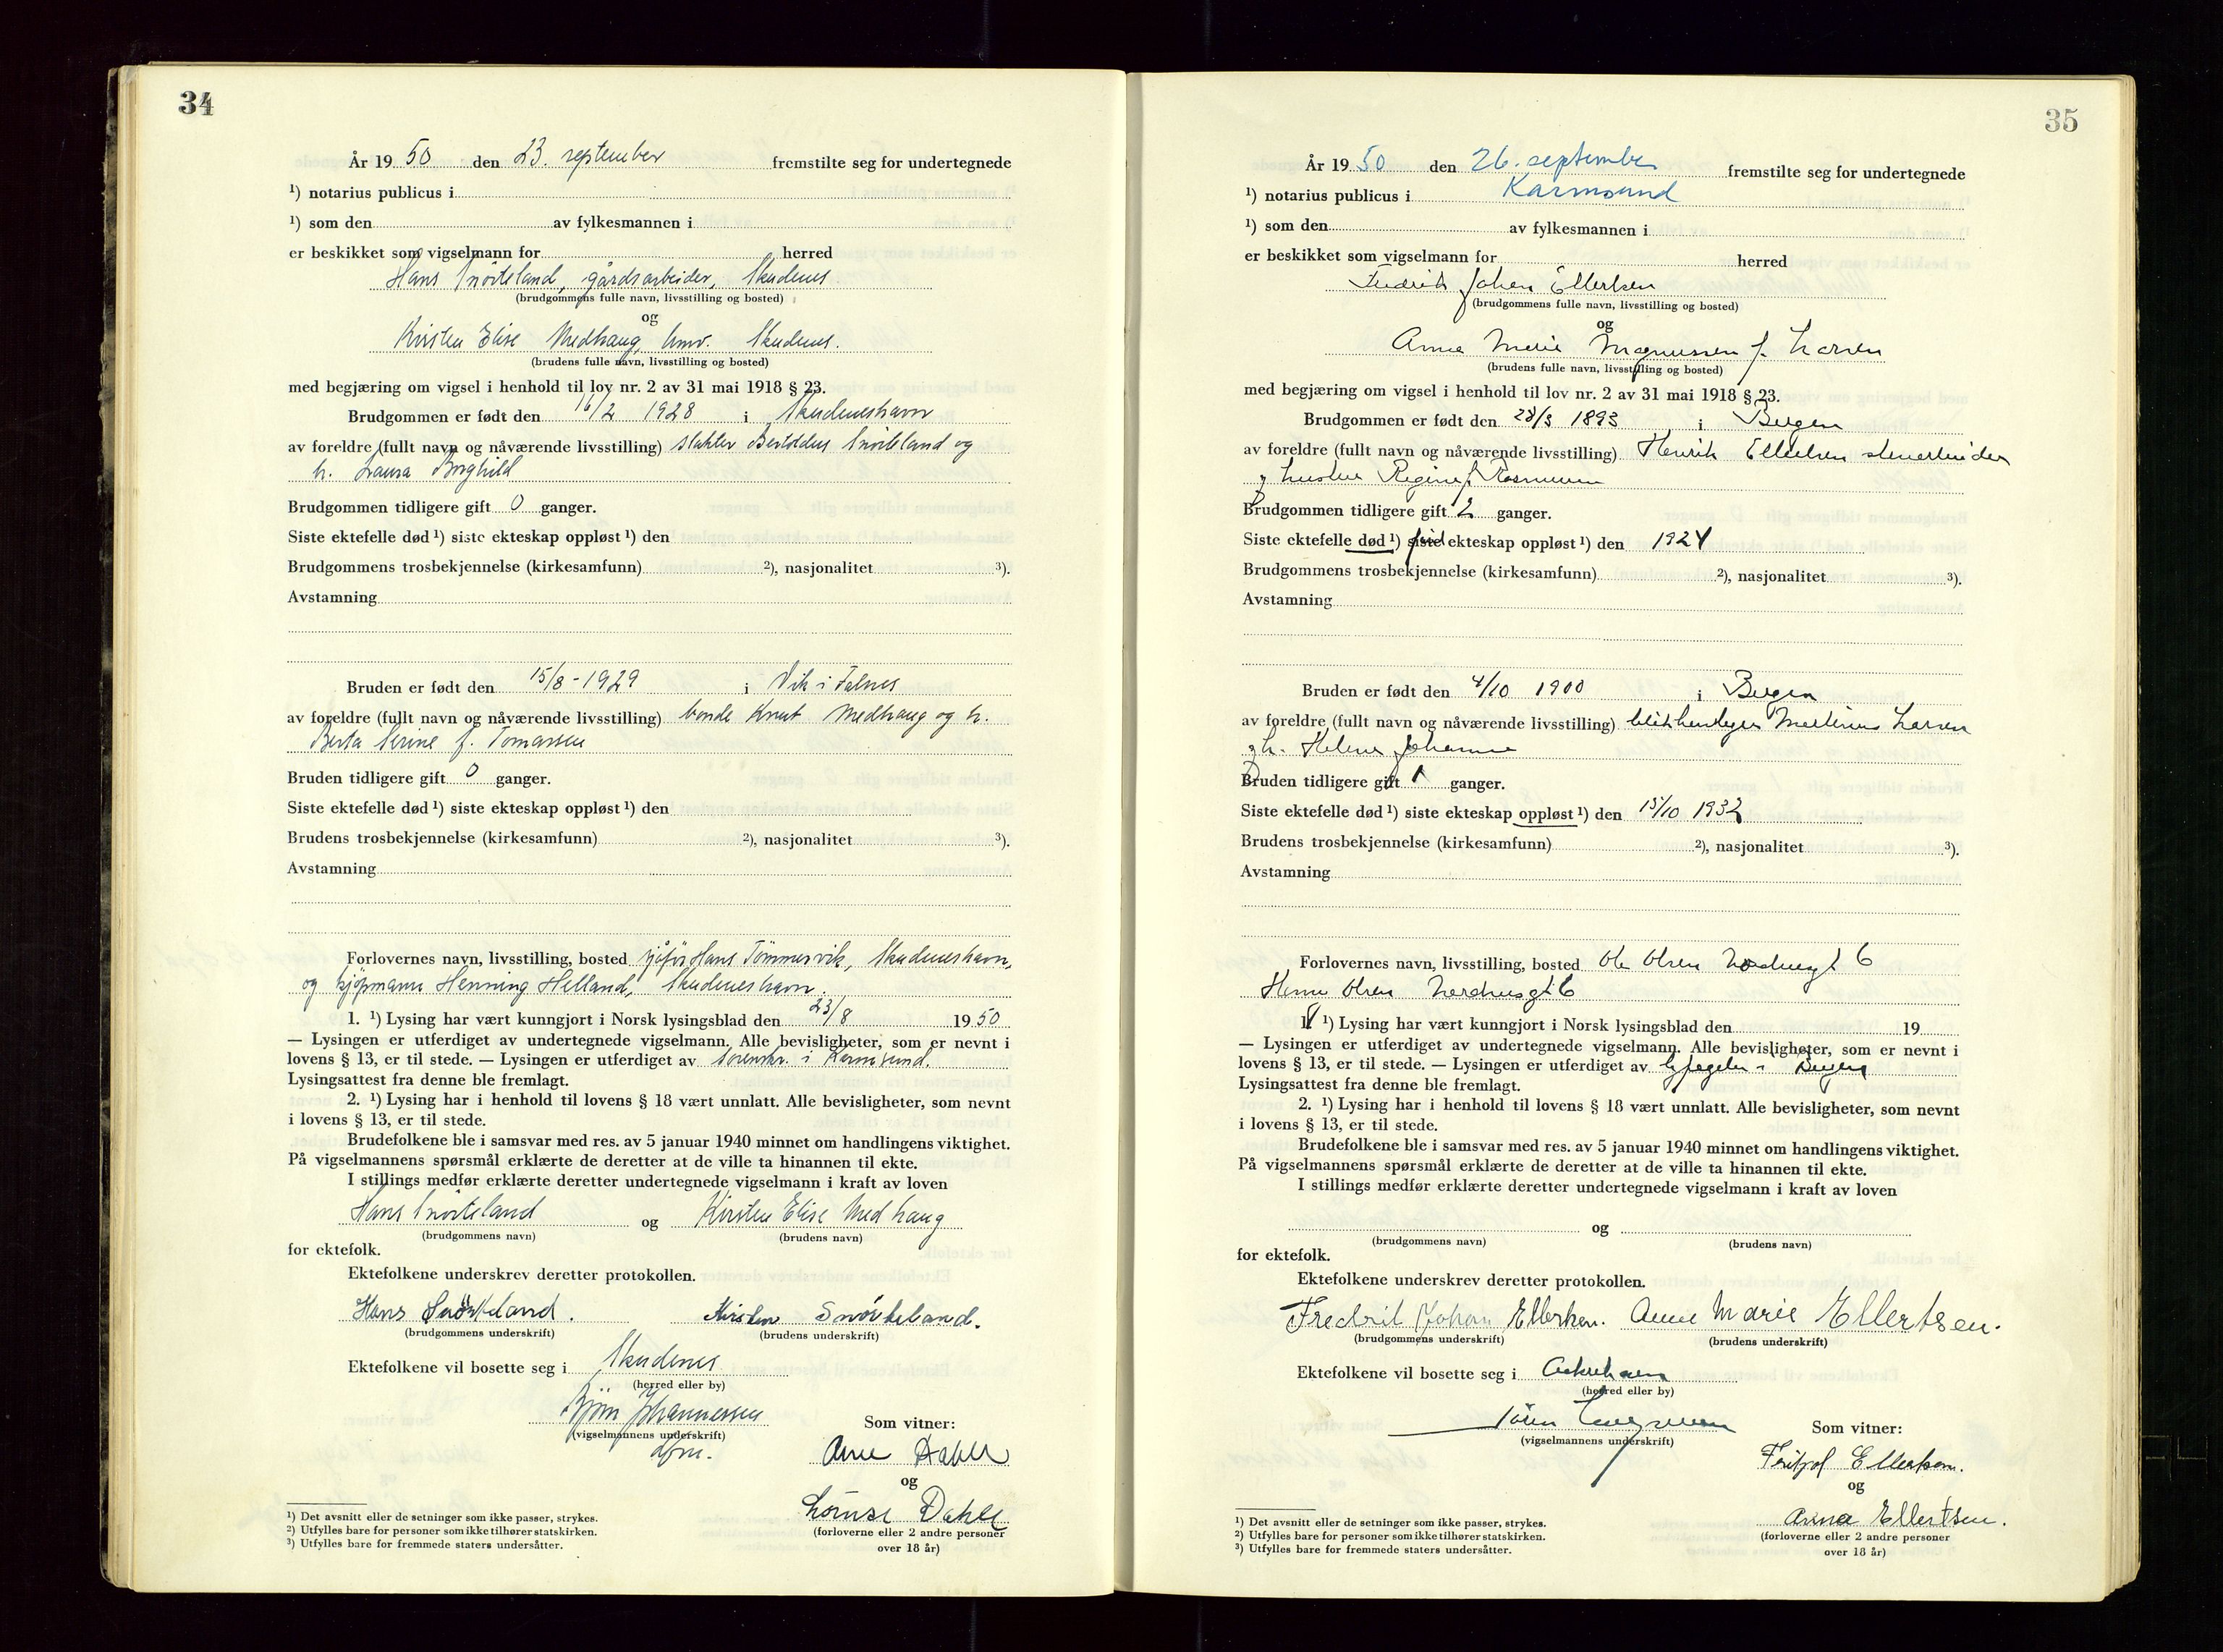 34
År 1950 den 23. september fremstilte seg for undertegnede
¹) notarius publicus i
¹) som den av fylkesmannen i
er beskikket som vigselmann for herred
Hans Snörteland, gårdsarbeider, Skudenes
(brudgommens fulle navn, livsstilling og bosted)
og
Kirsten Elise Medhaug, hmv. Skudenes.
(brudens fulle navn, livsstilling og bosted)
med begjæring om vigsel i henhold til lov nr. 2 av 31 mai 1918 § 23.
Brudgommen er født den 16/2 1928 i Skudeneshavn
av foreldre (fullt navn og nåværende livsstilling) slakter Snörteland og
h. Laura Borghild
Brudgommen tidligere gift 0 ganger.
Siste ektefelle død ¹) siste ekteskap oppløst ¹) den
Brudgommens trosbekjennelse (kirkesamfunn) ²), nasjonalitet ³).
Avstamning
Bruden er født den 15/8 - 1929 i Vik i Falnes
av foreldre (fullt navn og nåværende livsstilling) bonde Knut Medhaug og h.
Berta Serine f. Tomassen
Bruden tidligere gift 0 ganger.
Siste ektefelle død ¹) siste ekteskap oppløst ¹) den
Brudens trosbekjennelse (kirkesamfunn) ²), nasjonalitet ³).
Avstamning
Forlovernes navn, livsstilling, bosted sjåför Hans Tömmervik, Skudeneshavn,
og kjöpmann Henning Helland, Skudeneshavn.
1. ¹) Lysing har vært kunngjort i Norsk lysingsblad den 23/8 1950
— Lysingen er utferdiget av undertegnede vigselmann. Alle bevisligheter, som er nevnt i
lovens § 13, er til stede. — Lysingen er utferdiget av sorenskr. i Karmsund.
Lysingsattest fra denne ble fremlagt.
2. ¹) Lysing har i henhold til lovens § 18 vært unnlatt. Alle bevisligheter, som nevnt
i lovens § 13, er til stede.
Brudefolkene ble i samsvar med res. av 5 januar 1940 minnet om handlingens viktighet.
På vigselmannens spørsmål erklærte de deretter at de ville ta hinannen til ekte.
I stillings medfør erklærte deretter undertegnede vigselmann i kraft av loven
Hans Snörteland og Kirsten Elise Medhaug
(brudgommens navn) (brudens navn)
for ektefolk.
Ektefolkene underskrev deretter protokollen.
Hans Snörteland. Kirsten Snörteland.
(brudgommens underskrift) (brudens underskrift)
Ektefolkene vil bosette seg i Skudenes
(herred eller by)
Bjørn Johannessen
(vigselmannens underskrift)
dfm.
Som vitner:
Arne Dahle
og
Lovise Dahle
(forloverne eller 2 andre personer
over 18 år)
¹) Det avsnitt eller de setninger som ikke passer, strykes.
²) Utfylles bare for personer som ikke tilhører statskirken.
³) Utfylles bare for fremmede staters undersåtter.
35
År 1950 den 26. september fremstilte seg for undertegnede
¹) notarius publicus i Karmsund
¹) som den av fylkesmannen i
er beskikket som vigselmann for herred
Fredrik Johan Ellertsen
(brudgommens fulle navn, livsstilling og bosted)
og
Anna Marie Magnussen f. Larsen
(brudens fulle navn, livsstilling og bosted)
med begjæring om vigsel i henhold til lov nr. 2 av 31 mai 1918 § 23.
Brudgommen er født den 28/3 1893 i Bergen
av foreldre (fullt navn og nåværende livsstilling) Henrik Ellertsen stenarbeider
og hustru Regine f. Rasmussen
Brudgommen tidligere gift 2 ganger.
Siste ektefelle død ¹) siste ekteskap oppløst ¹) den 1924
Brudgommens trosbekjennelse (kirkesamfunn) ²), nasjonalitet ³).
Avstamning
Bruden er født den 4/10 1900 i Bergen
av foreldre (fullt navn og nåværende livsstilling) Larsen
og h. Helene Johanne
Bruden tidligere gift 1 ganger.
Siste ektefelle død ¹) siste ekteskap oppløst ¹) den 15/10 1932
Brudens trosbekjennelse (kirkesamfunn) ²), nasjonalitet ³).
Avstamning
Forlovernes navn, livsstilling, bosted Ole Olsen 6
Olsen 6
1. ¹) Lysing har vært kunngjort i Norsk lysingsblad den 19
— Lysingen er utferdiget av undertegnede vigselmann. Alle bevisligheter, som er nevnt i
lovens § 13, er til stede. — Lysingen er utferdiget av byfogden i Bergen
Lysingsattest fra denne ble fremlagt.
2. ¹) Lysing har i henhold til lovens § 18 vært unnlatt. Alle bevisligheter, som nevnt
i lovens § 13, er til stede.
Brudefolkene ble i samsvar med res. av 5 januar 1940 minnet om handlingens viktighet.
På vigselmannens spørsmål erklærte de deretter at de ville ta hinannen til ekte.
I stillings medfør erklærte deretter undertegnede vigselmann i kraft av loven
og
(brudgommens navn) (brudens navn)
for ektefolk.
Ektefolkene underskrev deretter protokollen.
Fredrik Johan Ellertsen. Anne Marie Ellertsen.
(brudgommens underskrift) (brudens underskrift)
Ektefolkene vil bosette seg i Åkrehavn
(herred eller by)
(vigselmannens underskrift)
Som vitner:
Fritjof Ellertsen.
og
Anna Ellertsen.
(forloverne eller 2 andre personer
over 18 år)
¹) Det avsnitt eller de setninger som ikke passer, strykes.
²) Utfylles bare for personer som ikke tilhører statskirken.
³) Utfylles bare for fremmede staters undersåtter.